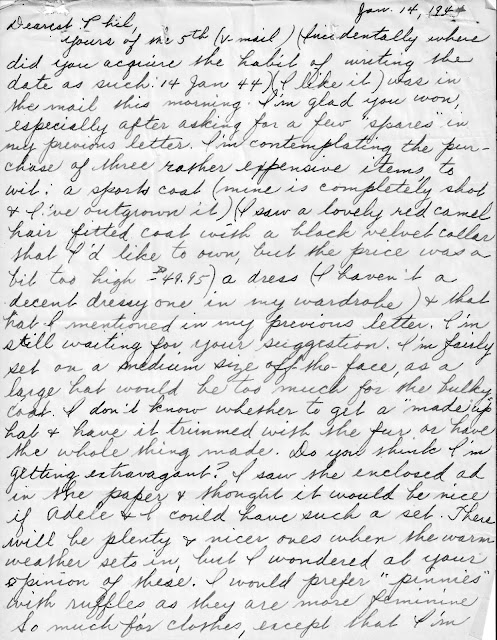 Jan. 14, 1944
Dearest Phil,
Yours of the 5th (V-mail) (Incidentally where
did you acquire the habit of writing the
date as such: 14 Jan 44) (I like it) was in
the mail this morning. I'm glad you won,
especially after asking for a few "spares" in
my previous letter. I'm contemplating the pur-
chase of three rather expensive items, to
wit: a sports coat (mine is completely shot
& I've outgrown it) (I saw a lovely red camel
hair fitted coat with a black velvet collar
that I'd like to own, but the price was a
bit too high - $49.95) a dress (I haven't a
decent dressy one in my wardrobe) & that
hat I mentioned in my previous letter. I'm
still waiting for your suggestion. I'm fairly
set on a medium size off-the-face, as a
large hat would be too much for the bulky
coat. I don't know whether to get a "made up"
hat & have it trimmed with the fur or have
the whole thing made. Do you think I'm
getting extravagant? I saw the enclosed ad
in the paper & thought it would be nice
if Adele & I could have such a set. There
will be plenty & nicer ones when the warm
weather sets in, but I wondered at your
opinion of these. I would prefer "pinnies"
with ruffles as they are more feminine
So much for clothes, except that I'm